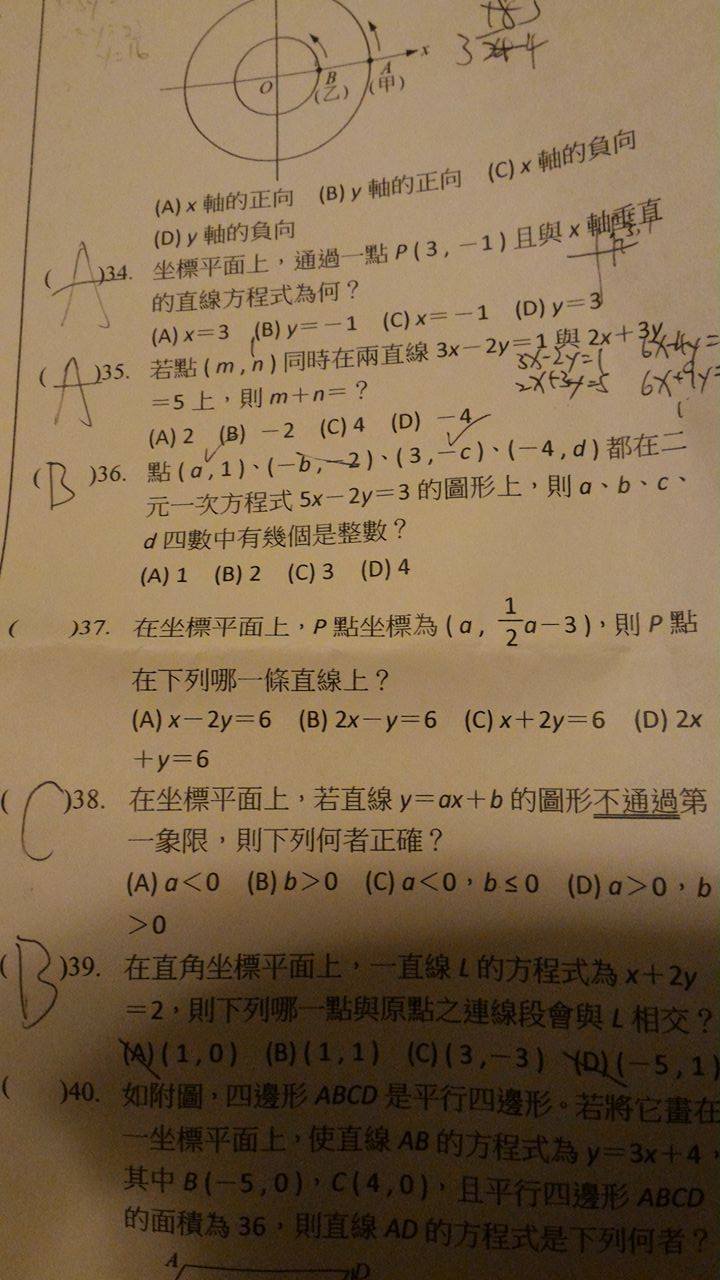 +83
3 x+4
x
O
B
A
(乙)
(甲)
(A) x 軸的正向 (B) y 軸的正向 (C) x 軸的負向
(D) y 軸的負向
( A )34. 坐標平面上，通過一點 P ( 3 , －1 ) 且與 x 軸垂直
的直線方程式為何？
(A) x＝3 (B) y＝－1 (C) x＝－1 (D) y＝3
( A )35. 若點 ( m , n ) 同時在兩直線 3x－2y＝1 與 2x＋3y
＝5 上，則 m＋n＝？
3x-2y=1
2x+3y=5
6x-4y=
6x+9y=
(A) 2 (B) －2 (C) 4 (D) －4
( B )36. 點 ( a , 1 )、( －b , －2 )、( 3 , －c )、( －4 , d ) 都在二
元一次方程式 5x－2y＝3 的圖形上，則 a、b、c、
d 四數中有幾個是整數？
(A) 1 (B) 2 (C) 3 (D) 4
( )37. 在坐標平面上，P 點坐標為 ( a , 1/2 a－3 )，則 P 點
在下列哪一條直線上？
(A) x－2y＝6 (B) 2x－y＝6 (C) x＋2y＝6 (D) 2x
＋y＝6
( C )38. 在坐標平面上，若直線 y＝ax＋b 的圖形不通過第
一象限，則下列何者正確？
(A) a＜0 (B) b＞0 (C) a＜0，b ≤ 0 (D) a＞0，b
＞0
( B )39. 在直角坐標平面上，一直線 L 的方程式為 x＋2y
＝2，則下列哪一點與原點之連線段會與 L 相交？
(A) ( 1 , 0 ) (B) ( 1 , 1 ) (C) ( 3 , －3 ) (D) ( －5 , 1 )
( )40. 如附圖，四邊形 ABCD 是平行四邊形。若將它畫在
一坐標平面上，使直線 AB 的方程式為 y＝3x＋4，
其中 B ( －5 , 0 )，C ( 4 , 0 )，且平行四邊形 ABCD
的面積為 36，則直線 AD 的方程式是下列何者？
A
D